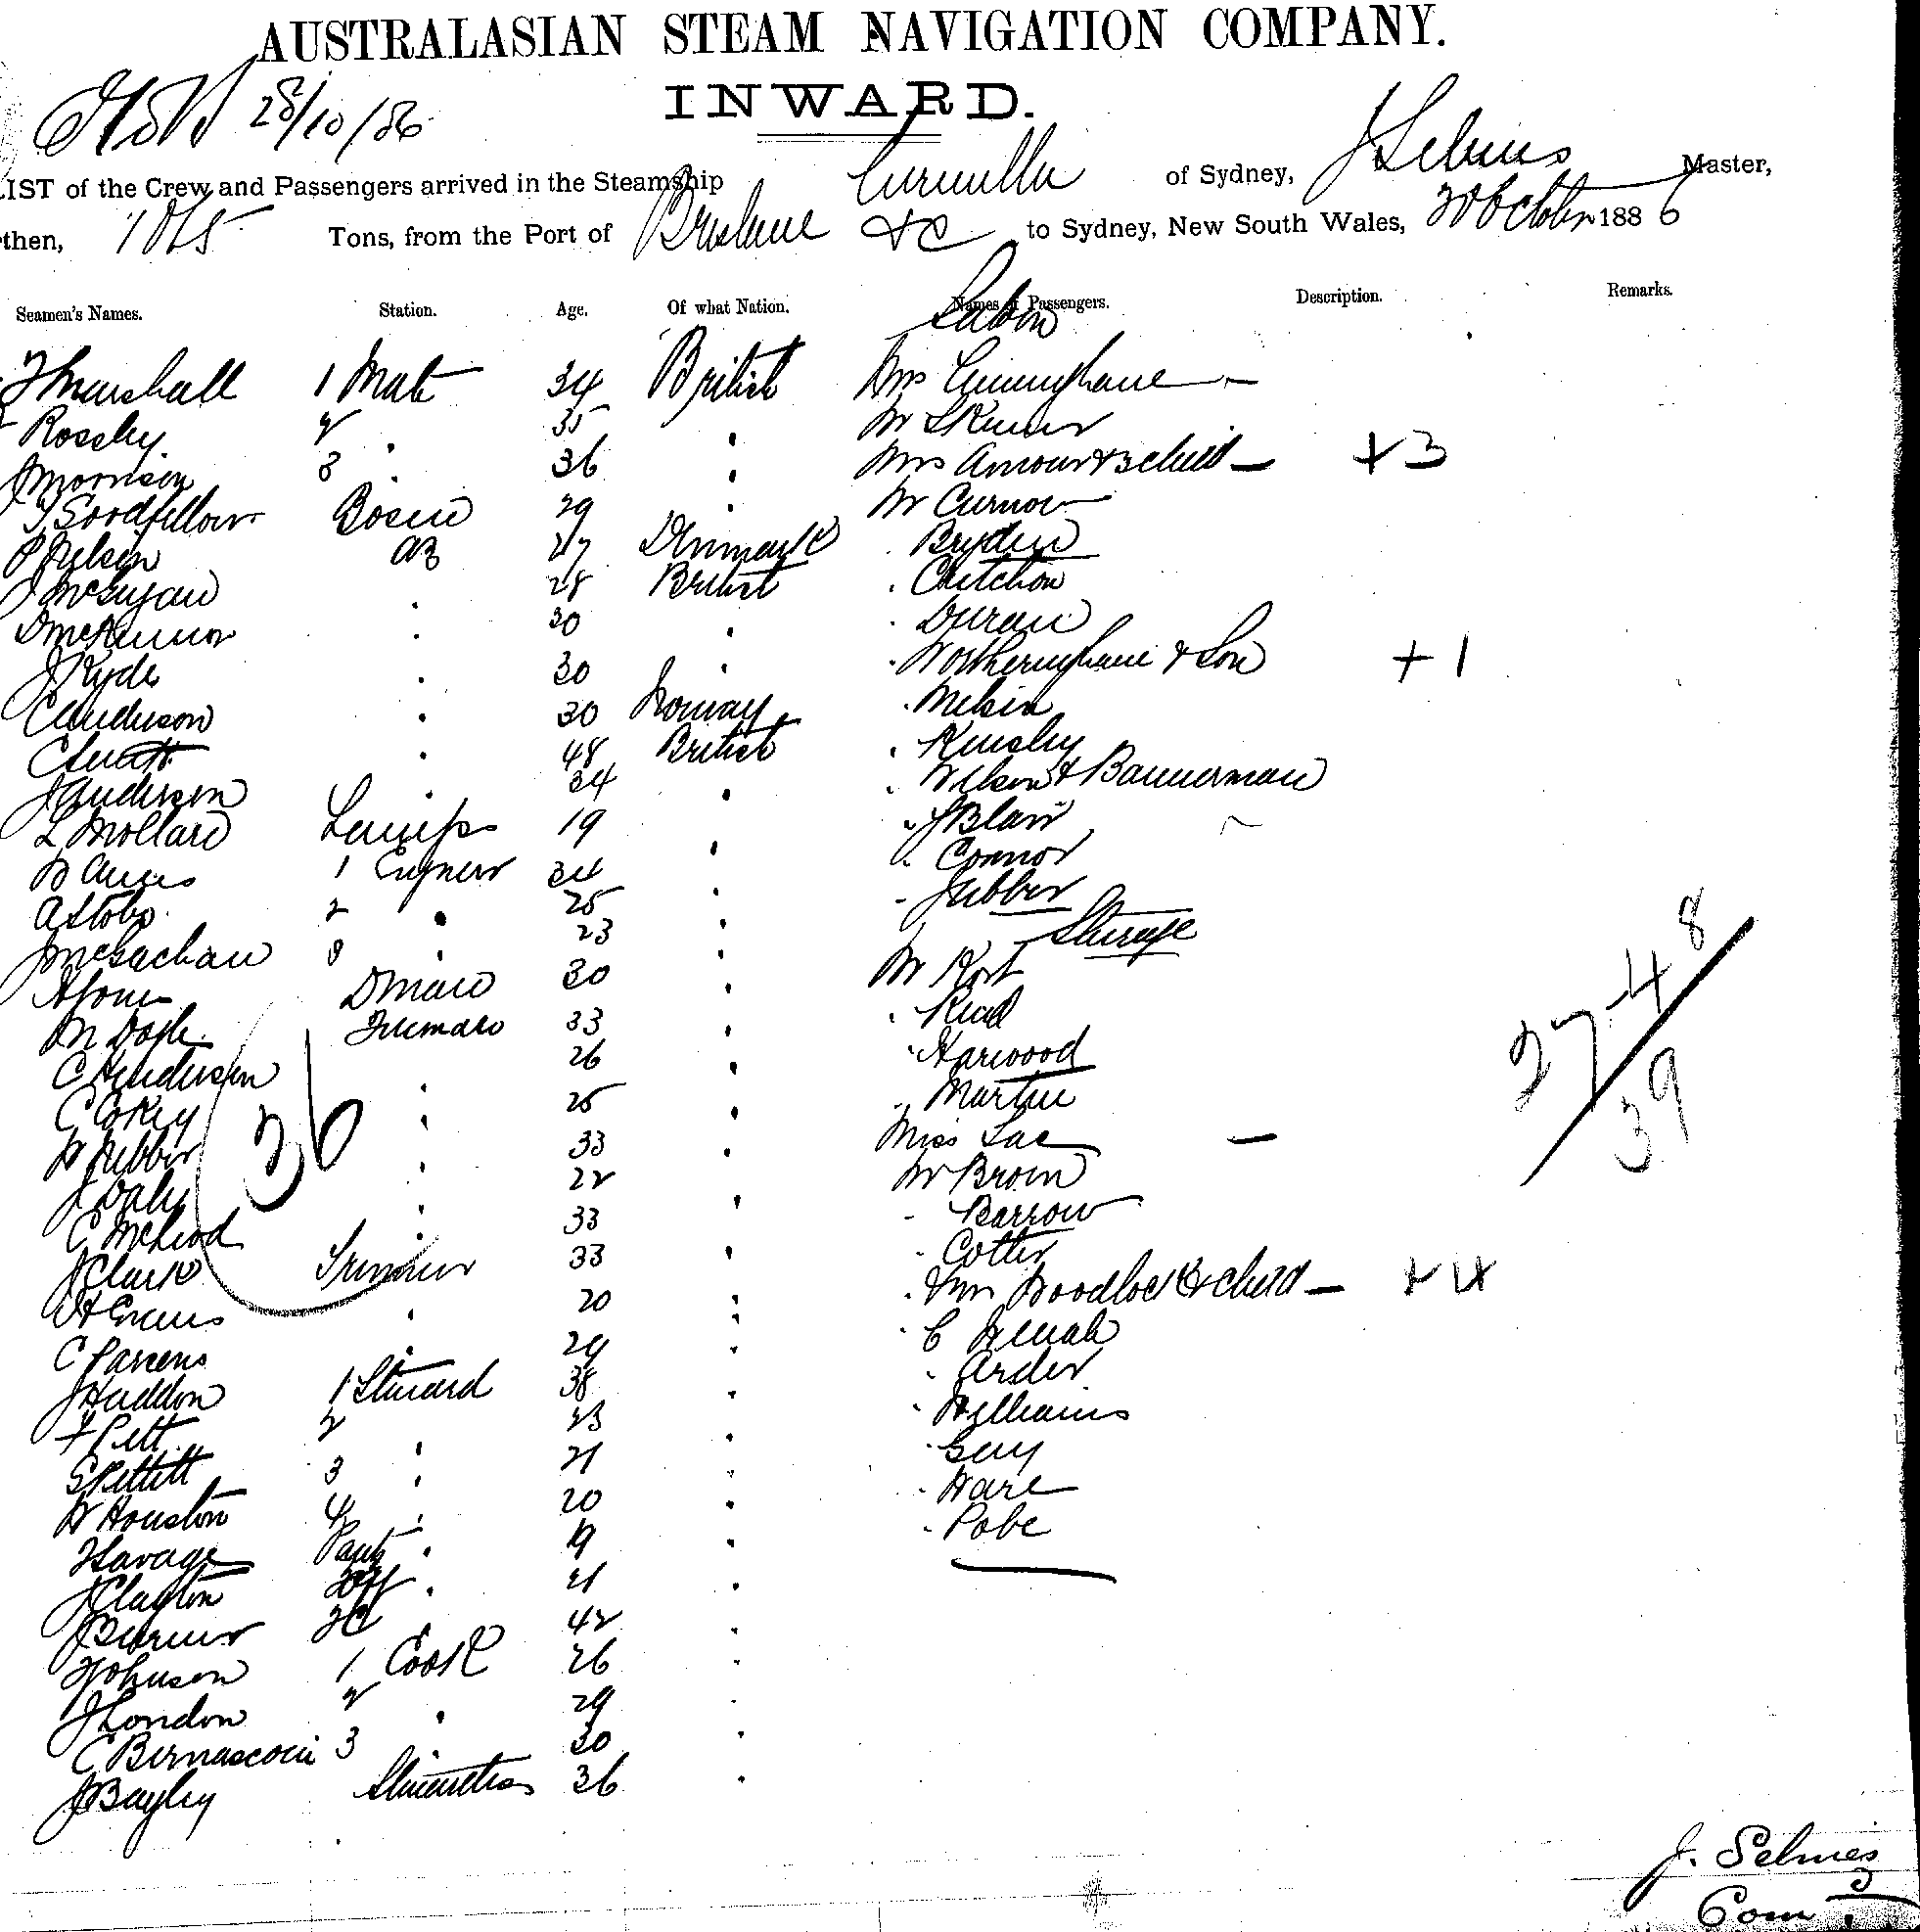 AUSTRALASIAN STEAM NAVIGATION COMPANY.
INWARD.
28/10/86
LIST of the Crew and Passengers arrived in the Steamship Gunnulla of Sydney, J Selmes Master,
then, 1015 Tons, from the Port of Brisbane &c to Sydney, New South Wales, 20 October 1886
Seamen's Names. Station. Age. Of what Nation. Names of Passengers. Description. Remarks.
Saloon
Marshall 1 Mate 34 British Mrs Cunninghame —
Rossley 2 " 35 " Mr Skinner
J Morrison 3 " 36 " Mrs Armour & 3 child — +3
T Goodfellow Bosun 29 " Mr Curnow
P Nelson AB 27 Denmark " Bryden
J McGugan 28 British " Cutchon
D McKinnon " 30 " " Duran
J Ryde " 30 " " Wotheringhame & Son +1
C Anderson " 30 Norway " Nelson
C Scott " 48 British " Kinsley
J Anderson " 34 " " Wilson & Bannerman
L Mollard Lamps 19 " " J Blair
W Angus 1 Engineer 34 " " Connor
A Stobo 2 " 25 " " Jubber
J McEachan 3 " 23 " Steerage
A Jones Dman 30 " Mr Kort
M Doyle Firemans 33 " " Read
C Henderson " 26 " " Harwood
C Cokey " 25 " " Martin
W Jubber " 33 " Miss Lac —
J Daly " 22 " Mr Brown
C McLeod " 33 " " Barrow
J Clark Trimmer 33 " " Cotter
H Evans " 20 " " Mrs Woodlock & 4 child — +4
C Parsons " 29 " C
J Haddon 1 Steward 38 " " Arder
F Pett 2 " 23 " " Williams
S Pettitt 3 " 21 " " Guy
W Houston 4 " 20 " " Hare
Savage Panty " 19 " " Pobe
J Clayton " 21 "
J 42 "
Johnson 1 Cook 26 "
J London 2 " 29 "
C Bernasconi 3 " 30 "
J Bayley Stewardess 36 "
36
27-48
39
J. Selmes
Com